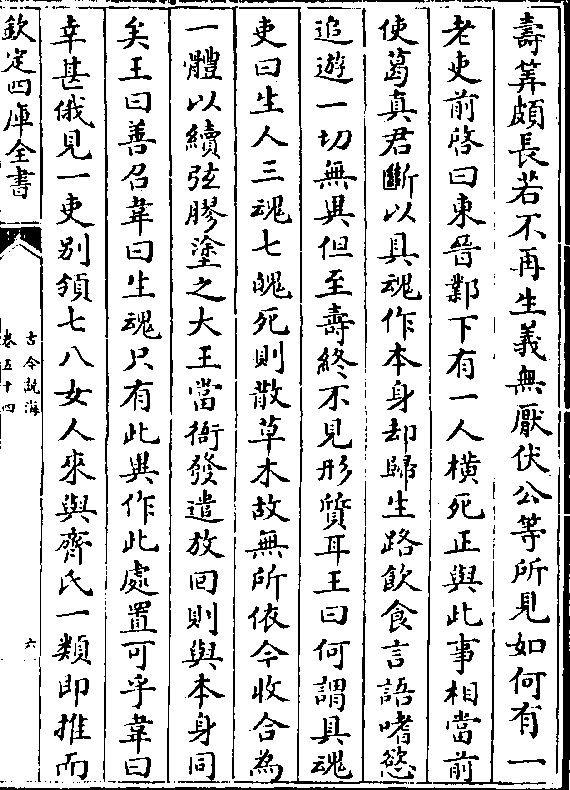 壽筭頗長若不再生義無厭伏公等所見如何有一
老吏前啓曰東晉鄴下有一人橫死正與此事相當前
使葛真君斷以具魂作本身却歸生路飲食言語嗜慾
追遊一切無異但至壽終不見形質耳王曰何謂具魂
吏曰生人三魂七魄死則散草木故無所依今收合為
一體以續弦膠塗之大王當衙發遣放回則與本身同
矣王曰善召韋曰生魂只有此異作此處置可乎韋曰
幸甚俄見一吏别領七八女人來與齊氏一類即推而
欽定四庫全書
古今說海
卷五十四
六